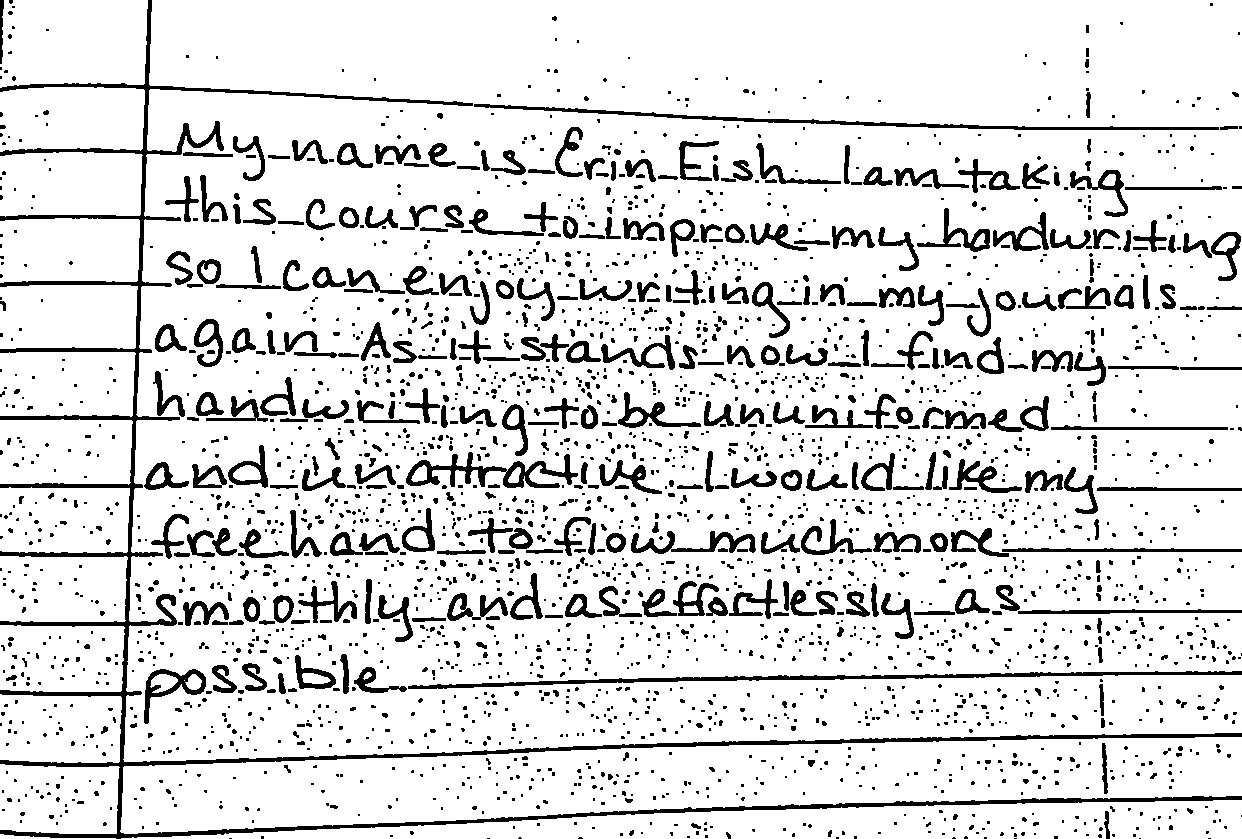 My name is Erin Eish I am taking
this course to improve my handwriting
so I can enjoy writing in my journals
again. As it stands now I find my
handwriting to be ununiformed
and unattractive. I would like my
freehand to flow much more
smoothly and as effortlessly as
possible.